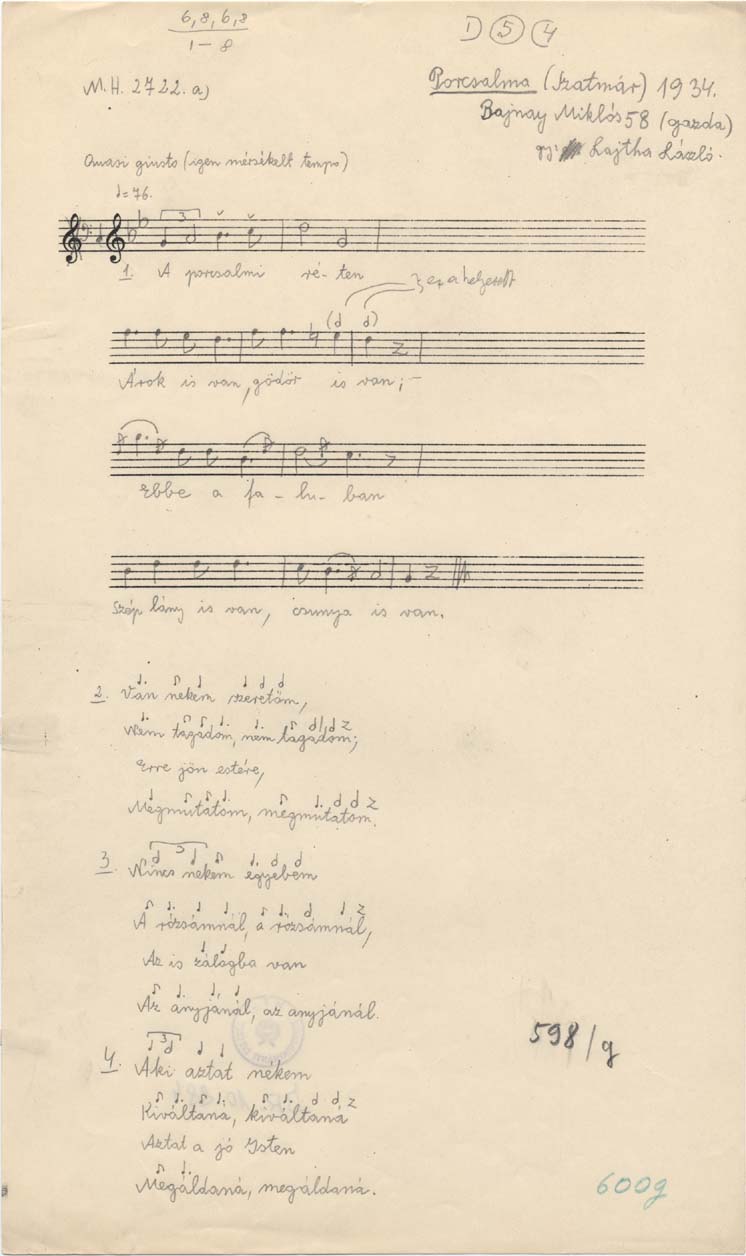 6,8,6,8
1-8
I) 5 (4
M.H. 2722. a)
Porcsalma (Szatmár) 1934.
Bajnay Miklós 58 (gazda)
gy. Lajtha László.
Quasi giusto (igen mérsékelt tempo)
=76.
3
1. A porcsalmi ré-ten
ez a helyesebb
Árok is van, gödör is van;-
Ebbe a fa-lu-ban
Szép lány is van, csunya is van.
2. Van nekem szeretőm,
Nem tagadom, nem tagadom;
Erre jön estére,
Megmutatom, megmutatom.
3 Nincs nekem egyebem
A rózsámnál, a rózsámnál,
Az is zálogba van
Az anyjánál, az anyjánál.
598/g
3
4. Aki aztat nékem
Kiváltaná, kiváltaná
Aztat a jó Isten
Megáldaná, megáldaná.
600g